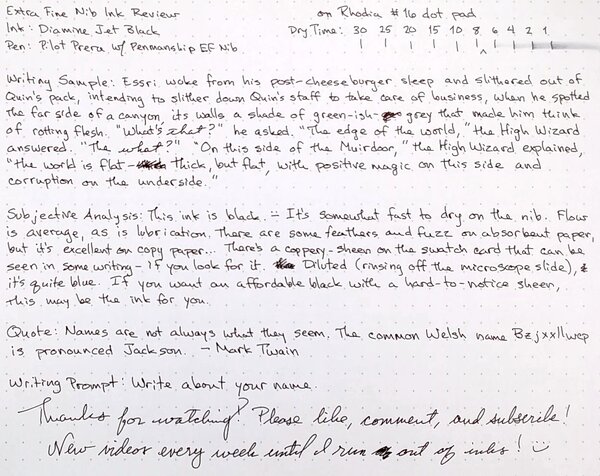 Extra Fine Nib Ink Review on Rhodia #16 dot pad
Ink: Diamine Jet Black Dry Time: 30 25 20 15 10 8 6 4 2 1
Pen: Pilot Prera w/ Penmanship EF Nib
Writing Sample: Essri woke from his post-cheeseburger sleep and slithered out of
Quin's pack, intending to slither down Quin's staff to take care of business, when he spotted
the far side of a canyon, its walls a shade of green-ish- grey that made him think
of rotting flesh. "What's that?" he asked. "The edge of the world," the High Wizard
answered. "The what?" "On this side of the Muirdoor," the High Wizard explained,
"the world is flat- thick, but flat, with positive magic on this side and
corruption on the underside."
Subjective Analysis: This ink is black. - It's somewhat fast to dry on the nib. Flow
is average, as is lubrication. There are some feathers and fuzz on absorbent paper,
but it's excellent on copy paper... There's a coppery-sheen on the swatch card that can be
seen in some writing- if you look for it. Diluted (rinsing off the microscope slide),
it's quite blue. If you want an affordable black with a hard-to-notice sheen,
this may be the ink for you.
Quote: Names are not always what they seem. The common Welsh name Bzjxxllwcp
is pronounced Jackson. - Mark Twain
Writing Prompt: Write about your name.
Thanks for watching! Please like, comment, and subscribe!
New videos every week until I run out of inks!